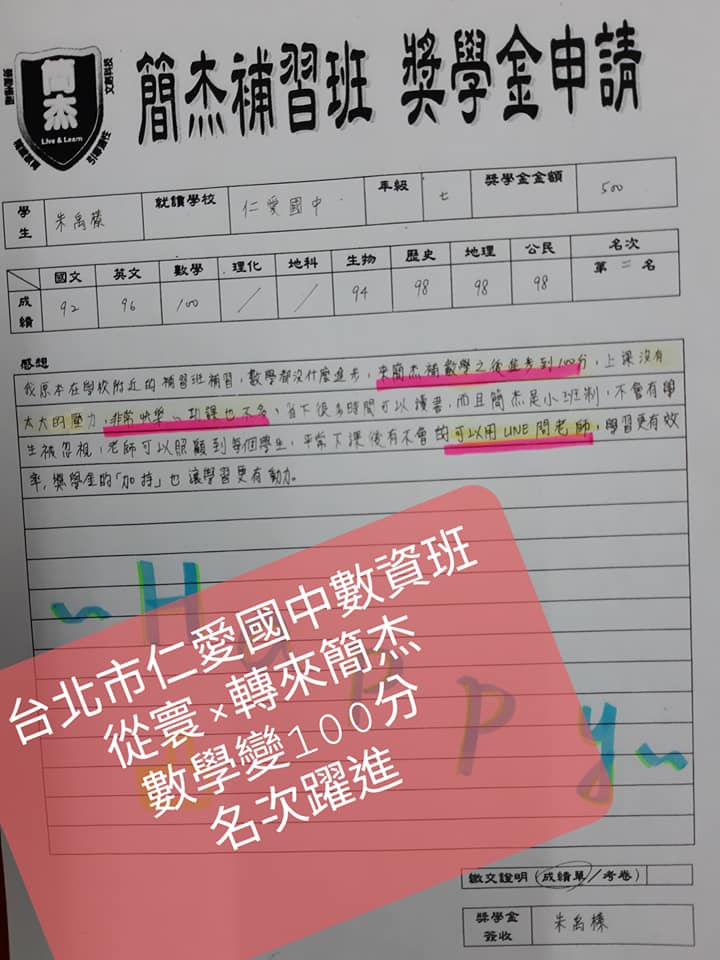 簡杰
Live & Learn
簡杰補習班 獎學金申請
學生 朱禹榛 就讀學校 仁愛國中 年級 七 獎學金金額 500
國文 英文 數學 理化 地科 生物 歷史 地理 公民 名次
成績 92 96 100 / / 94 98 98 98 第二名
感想
我原本在學校附近的補習班補習,數學都沒什麼進步,來簡杰補數學之後進步到100分,上課沒有
太大的壓力,非常快樂~功課也不多,留下很多時間可以讀書,而且簡杰是小班制,不會有學
生被忽視,老師可以照顧到每個學生,平常下課後有不會的可以用LINE問老師,學習更有效
率,獎學金的「加持」也讓學習更有動力。
~Happy~
台北市仁愛國中數資班
從寰×轉來簡杰
數學變100分
名次躍進
繳交證明(成績單/考卷)
獎學金簽收 朱禹榛